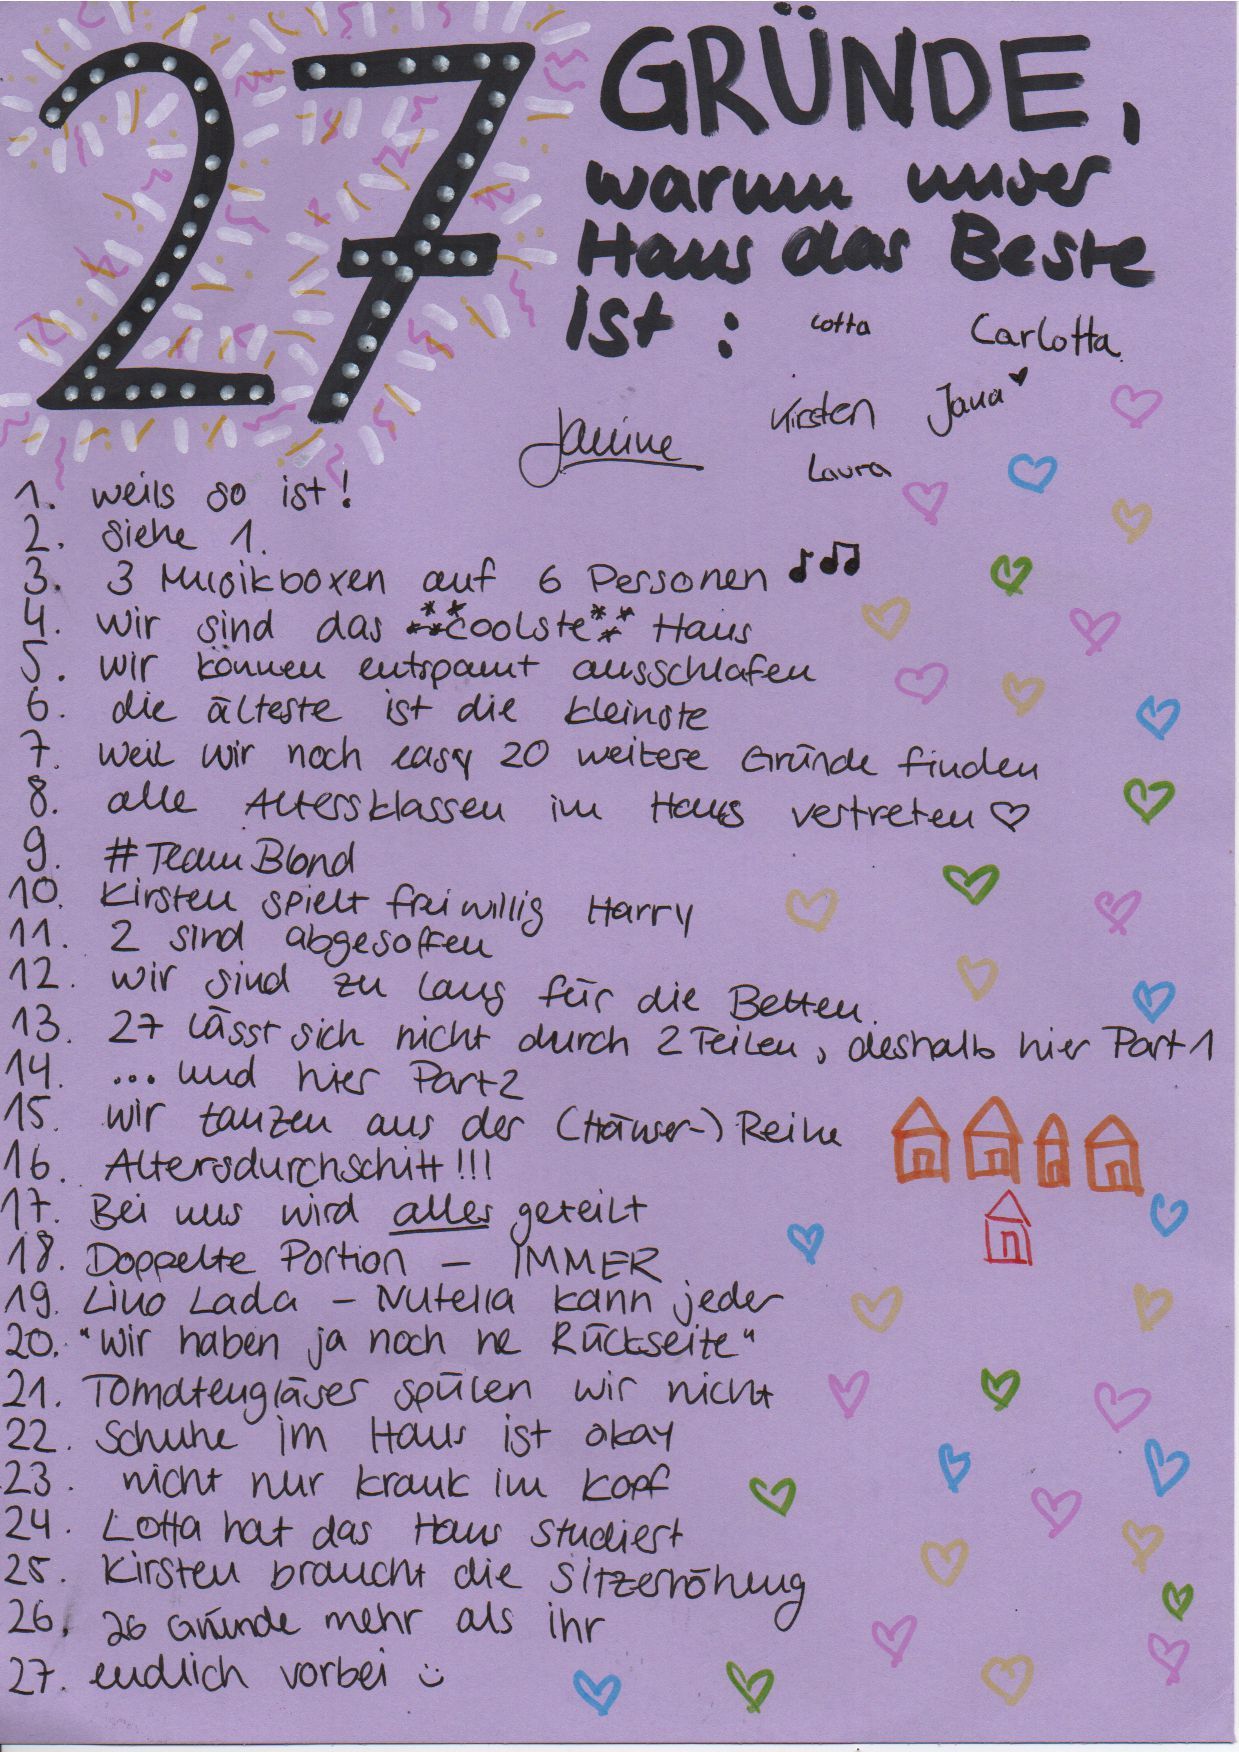 27 GRÜNDE,
warum unser
Haus das Beste
ist:
Lotta Carlotta
Janine Kirsten Jana
Laura
1. weils so ist!
2. siehe 1.
3. 3 Musikboxen auf 6 Personen
4. wir sind das **coolste** Haus
5. wir können entspannt ausschlafen
6. die älteste ist die kleinste
7. weil wir noch easy 20 weitere Gründe finden
8. alle Altersklassen im Haus vertreten ♡
9. #TeamBlond
10. Kirsten spielt freiwillig Harry
11. 2 sind abgesoffen
12. wir sind zu lang für die Betten.
13. 27 lässt sich nicht durch 2 Teilen, deshalb hier Part 1
14. ... und hier Part 2
15. wir tanzen aus der (Häuser-) Reihe
16. Altersdurchschitt!!!
17. Bei uns wird alles geteilt
18. Doppelte Portion - IMMER
19. Lino Lada - Nutella kann jeder
20. "Wir haben ja noch ne Rückseite"
21. Tomatengläser spülen wir nicht
22. Schuhe im Haus ist okay
23. nicht nur krank im Kopf
24. Lotta hat das Haus studiert
25. Kirsten braucht die Sitzerhöhung
26. 26 Gründe mehr als ihr
27. endlich vorbei